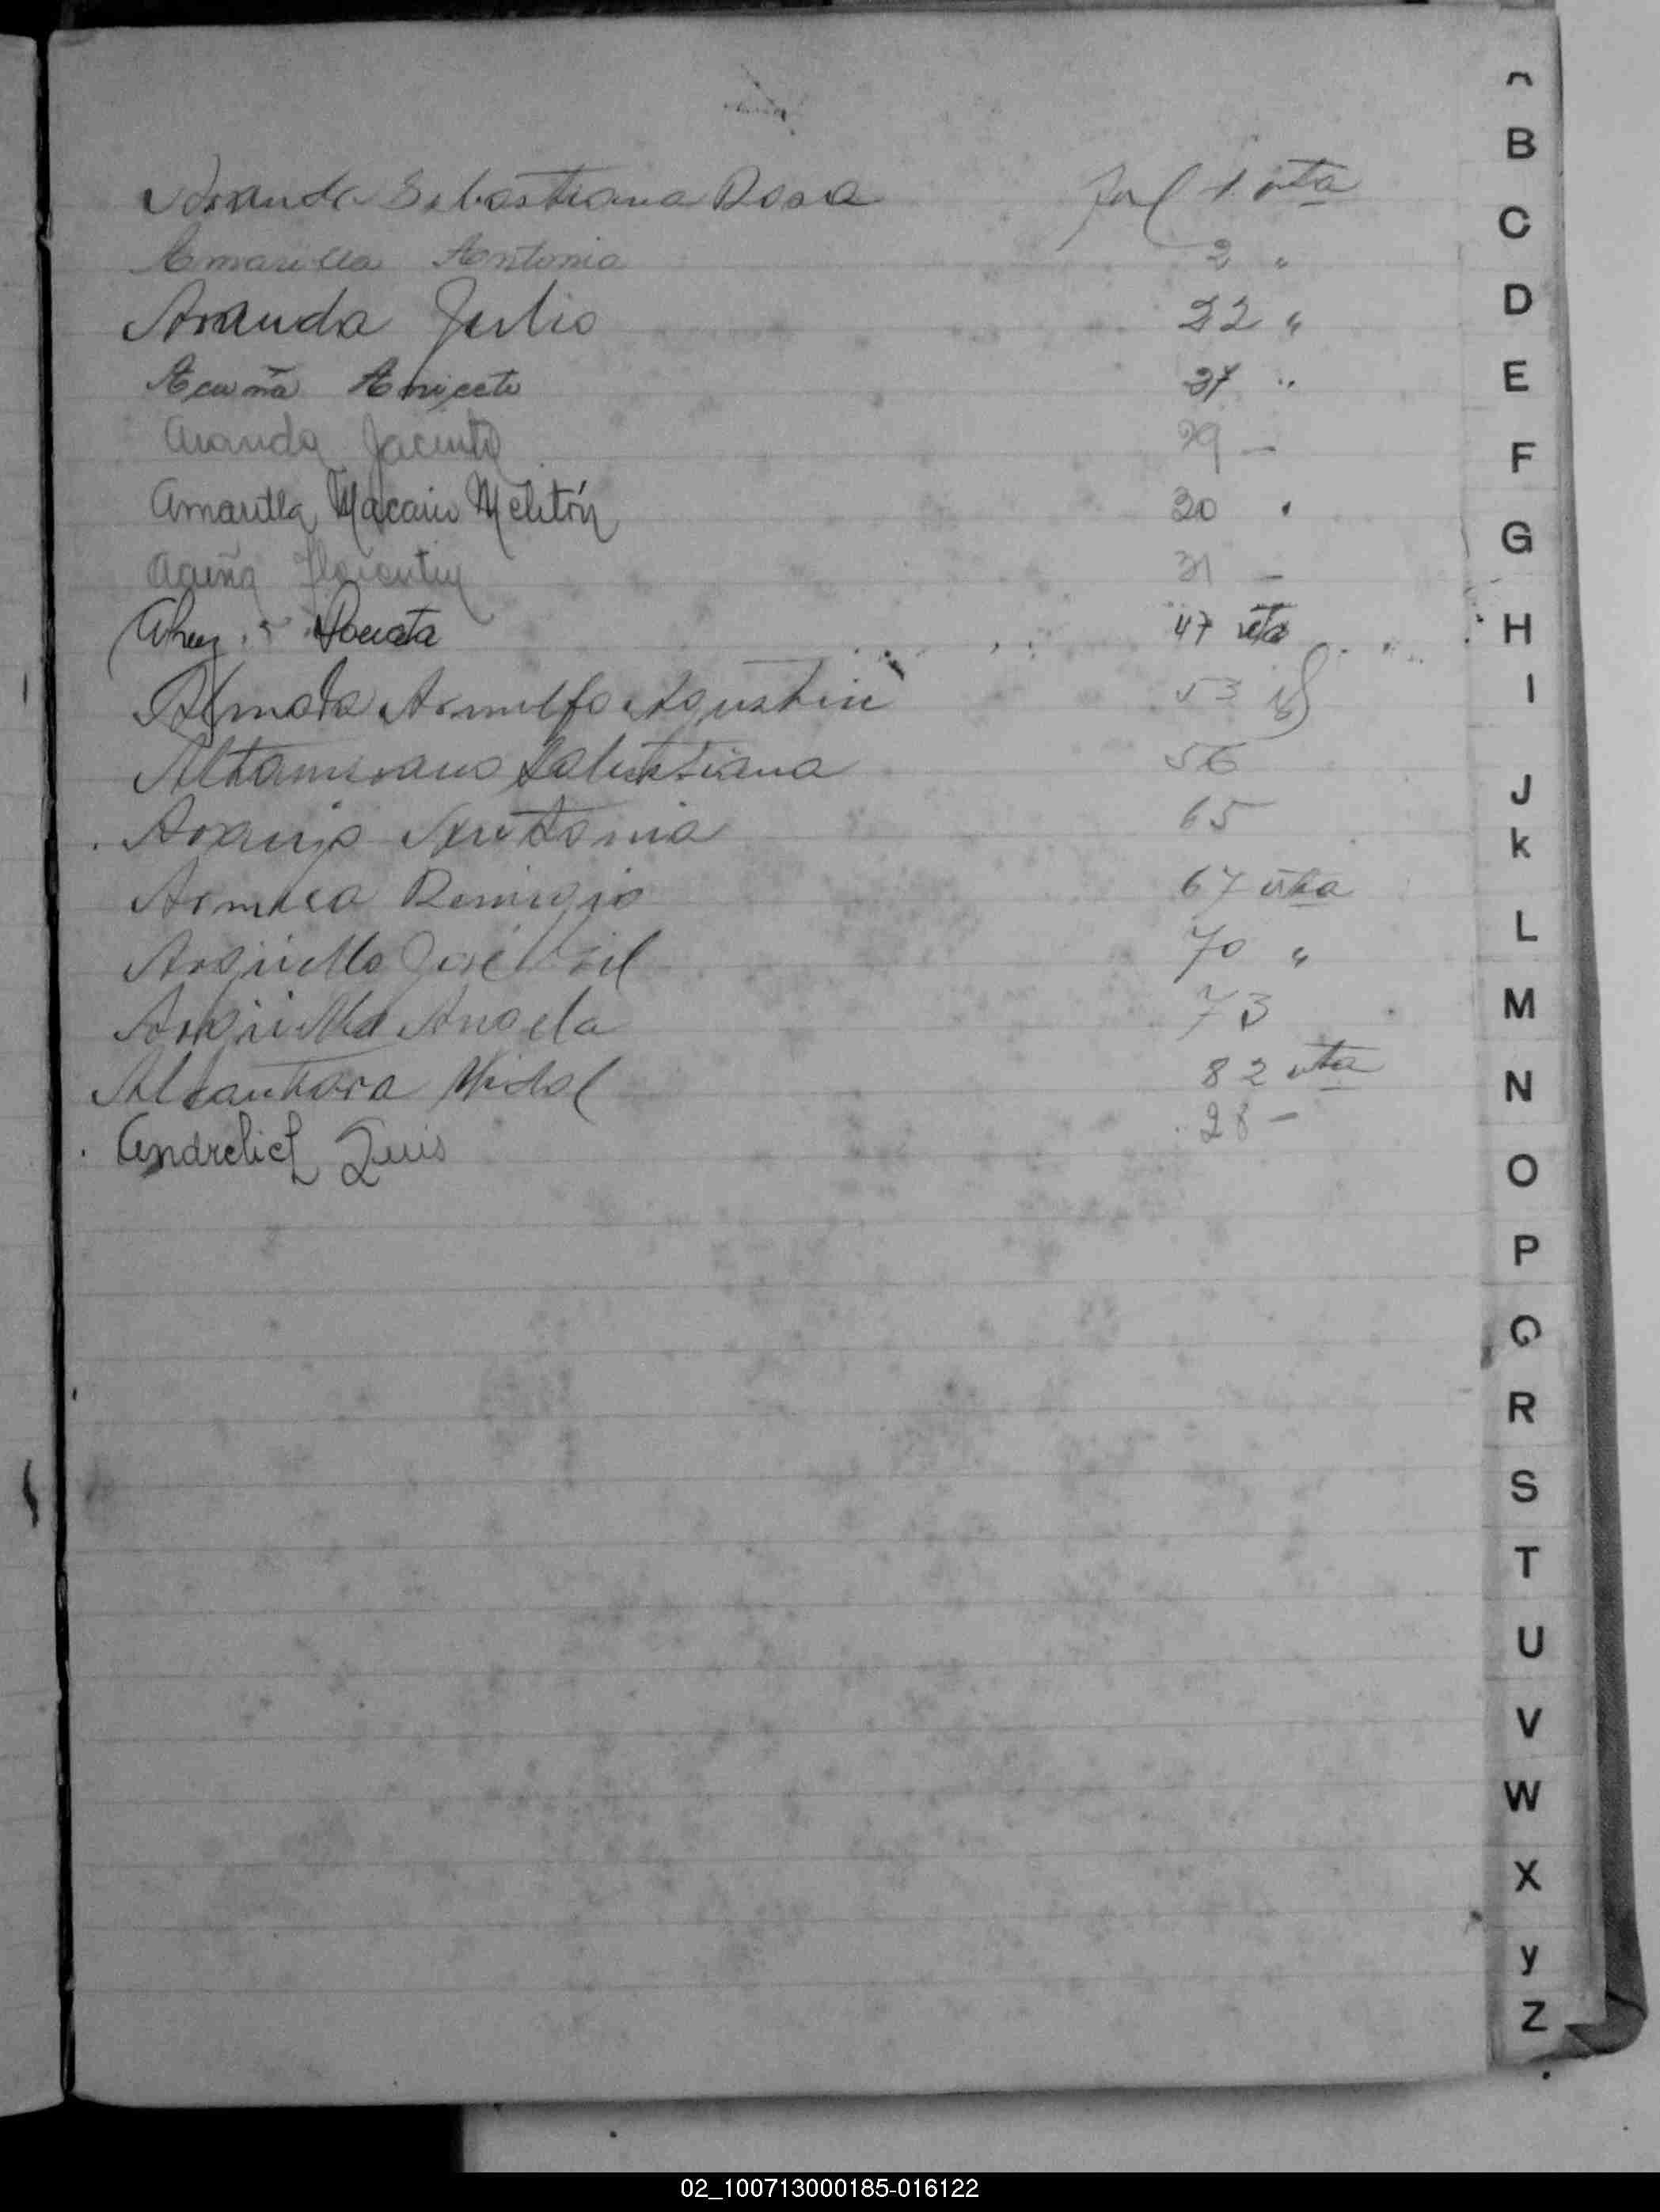 Aranda Sebastiana Rosa Fol 1 vta
Amarilla Antonia 2 "
Aranda Julio 22 "
Acuña Aniceto 27 "
Aranda Jacinto 29 —
Amarilla Macario Melitón 30 "
Acuña Florentin 31 —
47 vta
Almada Arnulfo Agustin 53
Altamirano Salustiana 56
Araujo Antonia 65
Armoa Remigio 67 vta
Argüello José Gil 70 "
Argüello Angela 73
Alcantara Vidal 82 vta
Andrelich Luis 28 —
B
C
D
E
F
G
H
I
J
k
L
M
N
O
P
Q
R
S
T
U
V
W
X
y
Z
02_100713000185-016122